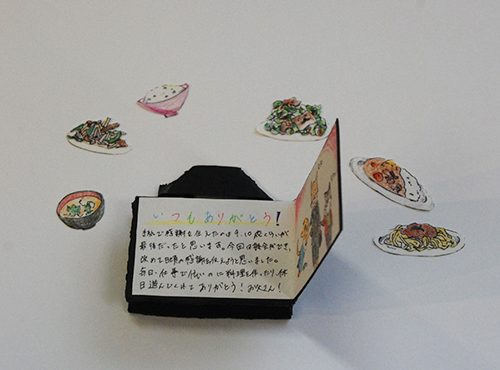 いつもありがとう!
手紙で感謝を伝えたのは10歳くらいが
最後だったと思います。今回は機会ができ、
改めて日頃の感謝を伝えようと思いました。
毎日、仕事で忙しいのに料理を作ったり、休
日遊んでくれてありがとう!お父さん!